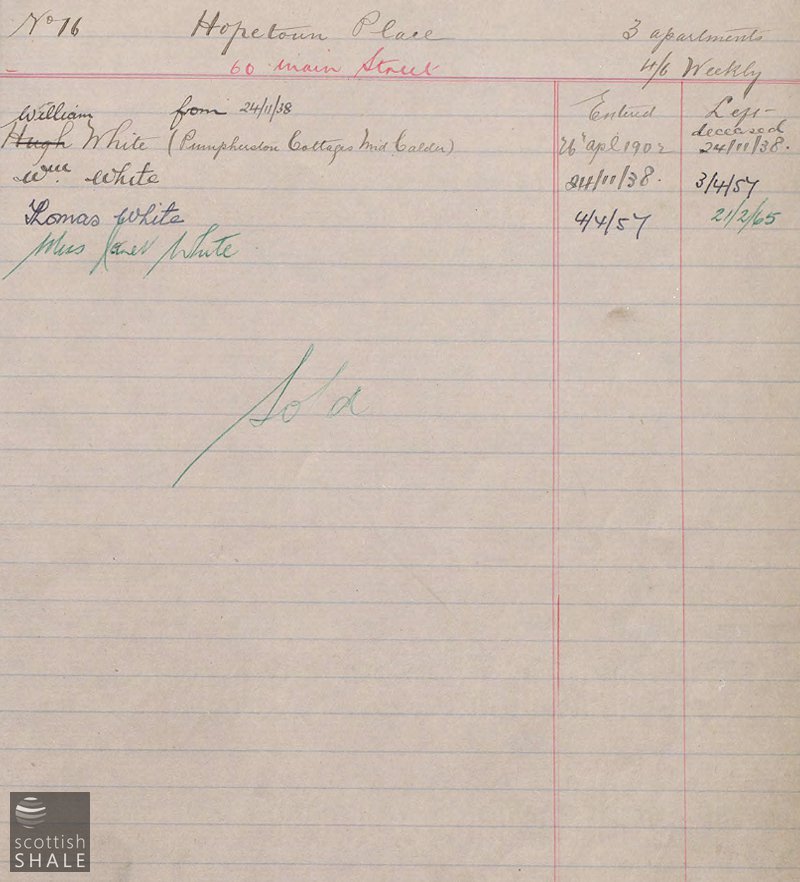 No 16 Hopetoun Place 3 apartments
60 Main Street 4/6 Weekly
William from 24/11/38 Entered Left
deceased
Hugh White (Pumpherston Cottages Mid Calder) 26" apl 1902 24/11/38.
Wm White 24/11/38. 3/4/57
Thomas White 4/4/57 21/2/65
Miss Janet White
Sold
scottish
SHALE